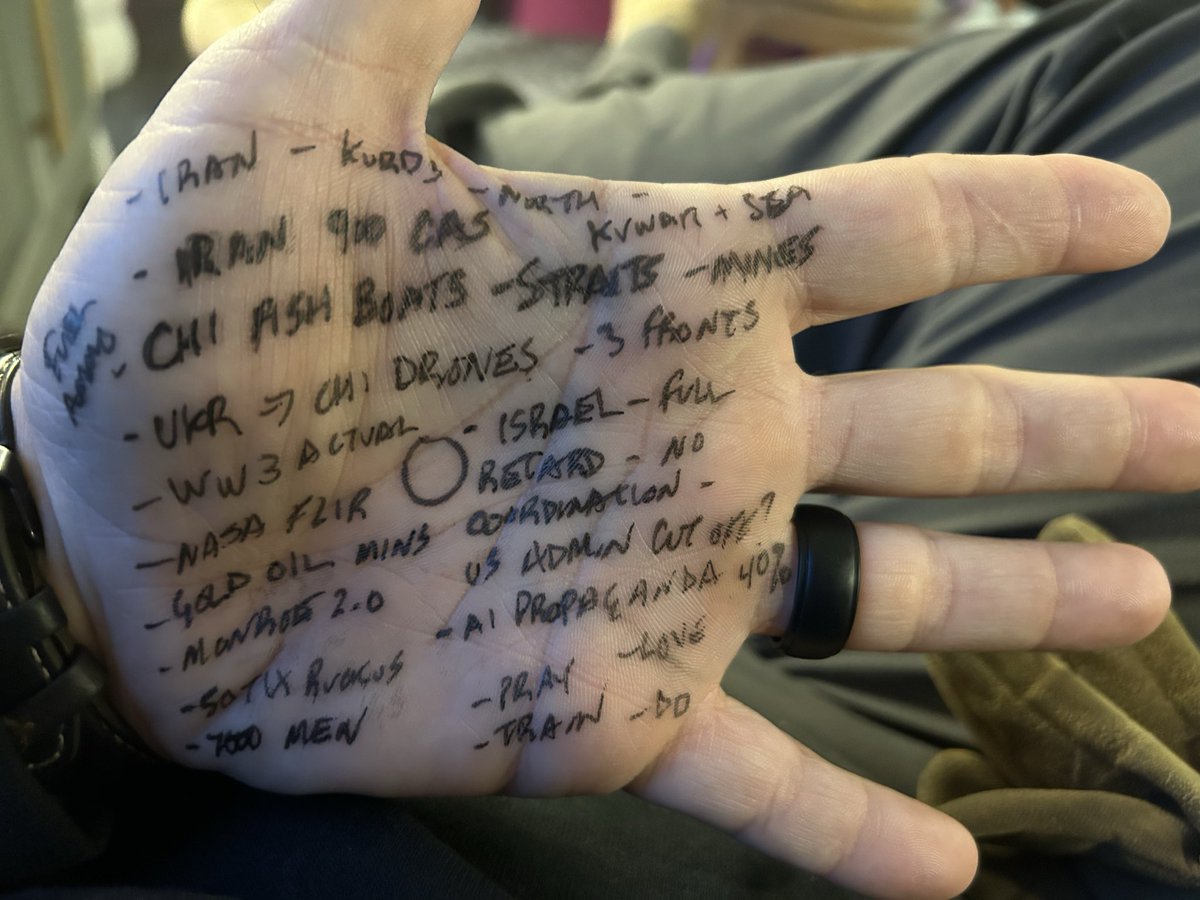 - IRAN - KURDS - NORTH -
KUWAR + SEA
- IRAN 900 CAS
- CHI FISH BOATS - STRAITS - MINES
- UKR → CHI DRONES - 3 FRONTS
- WW3 ACTUAL
- NASA FLIR
- GOLD OIL MINS
- MONROE 2.0
- SOTIX RUCKUS
- 7000 MEN
- ISRAEL - FULL
RETARD - NO
COORDINATION -
US ADMIN CUT OFF?
- AI PROPAGANDA 40%
- PRAY - LOVE
- TRAIN - DO